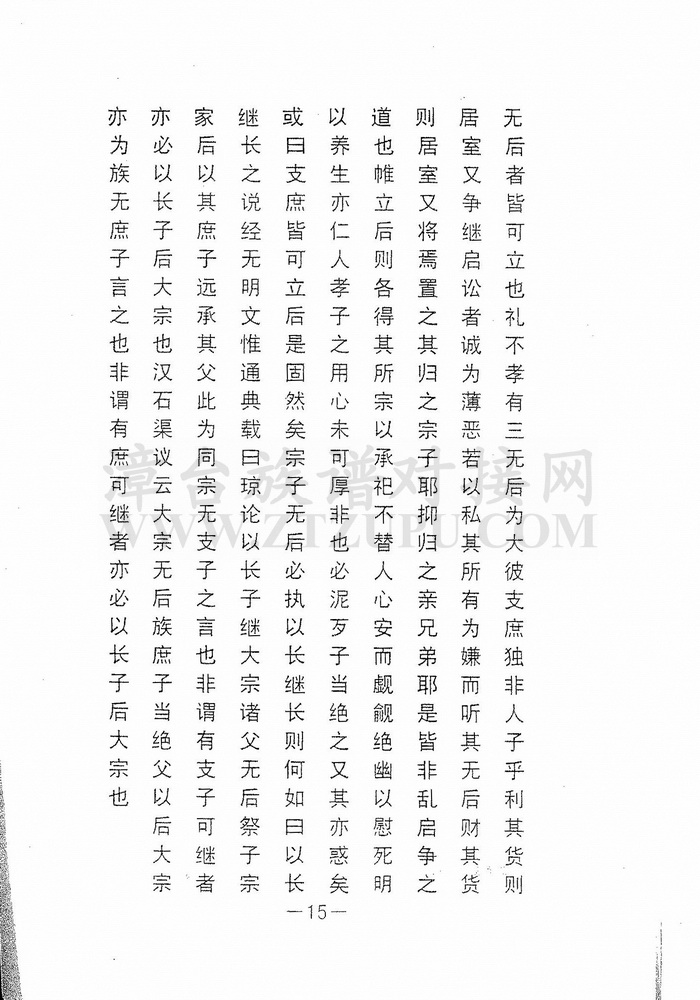 无后者皆可立也礼不孝有三无后为大彼支庶独非人子乎利其货则
居室又争继启讼者诚为薄恶若以私其所有为嫌而听其无后财其货
则居室又将焉置之其归之宗子耶抑归之亲兄弟耶是皆非乱启争之
道也帷立后则各得其所宗以承祀不替人心安而觑觎绝幽以慰死明
以养生亦仁人孝子之用心未可厚非也必泥歹子当绝之又其亦惑矣
或曰支庶皆可立后是固然矣宗子无后必执以长继长则何如曰以长
继长之说经无明文惟通典载曰琼论以长子继大宗诸父无后祭子宗
家后以其庶子远承其父此为同宗无支子之言也非谓有支子可继者
亦必以长子后大宗也汉石渠议云大宗无后族庶子当绝父以后大宗
亦为族无庶子言之也非谓有庶可继者亦必以长子后大宗也
漳台族谱对接网
WWW.ZTZUPU.COM
—15—